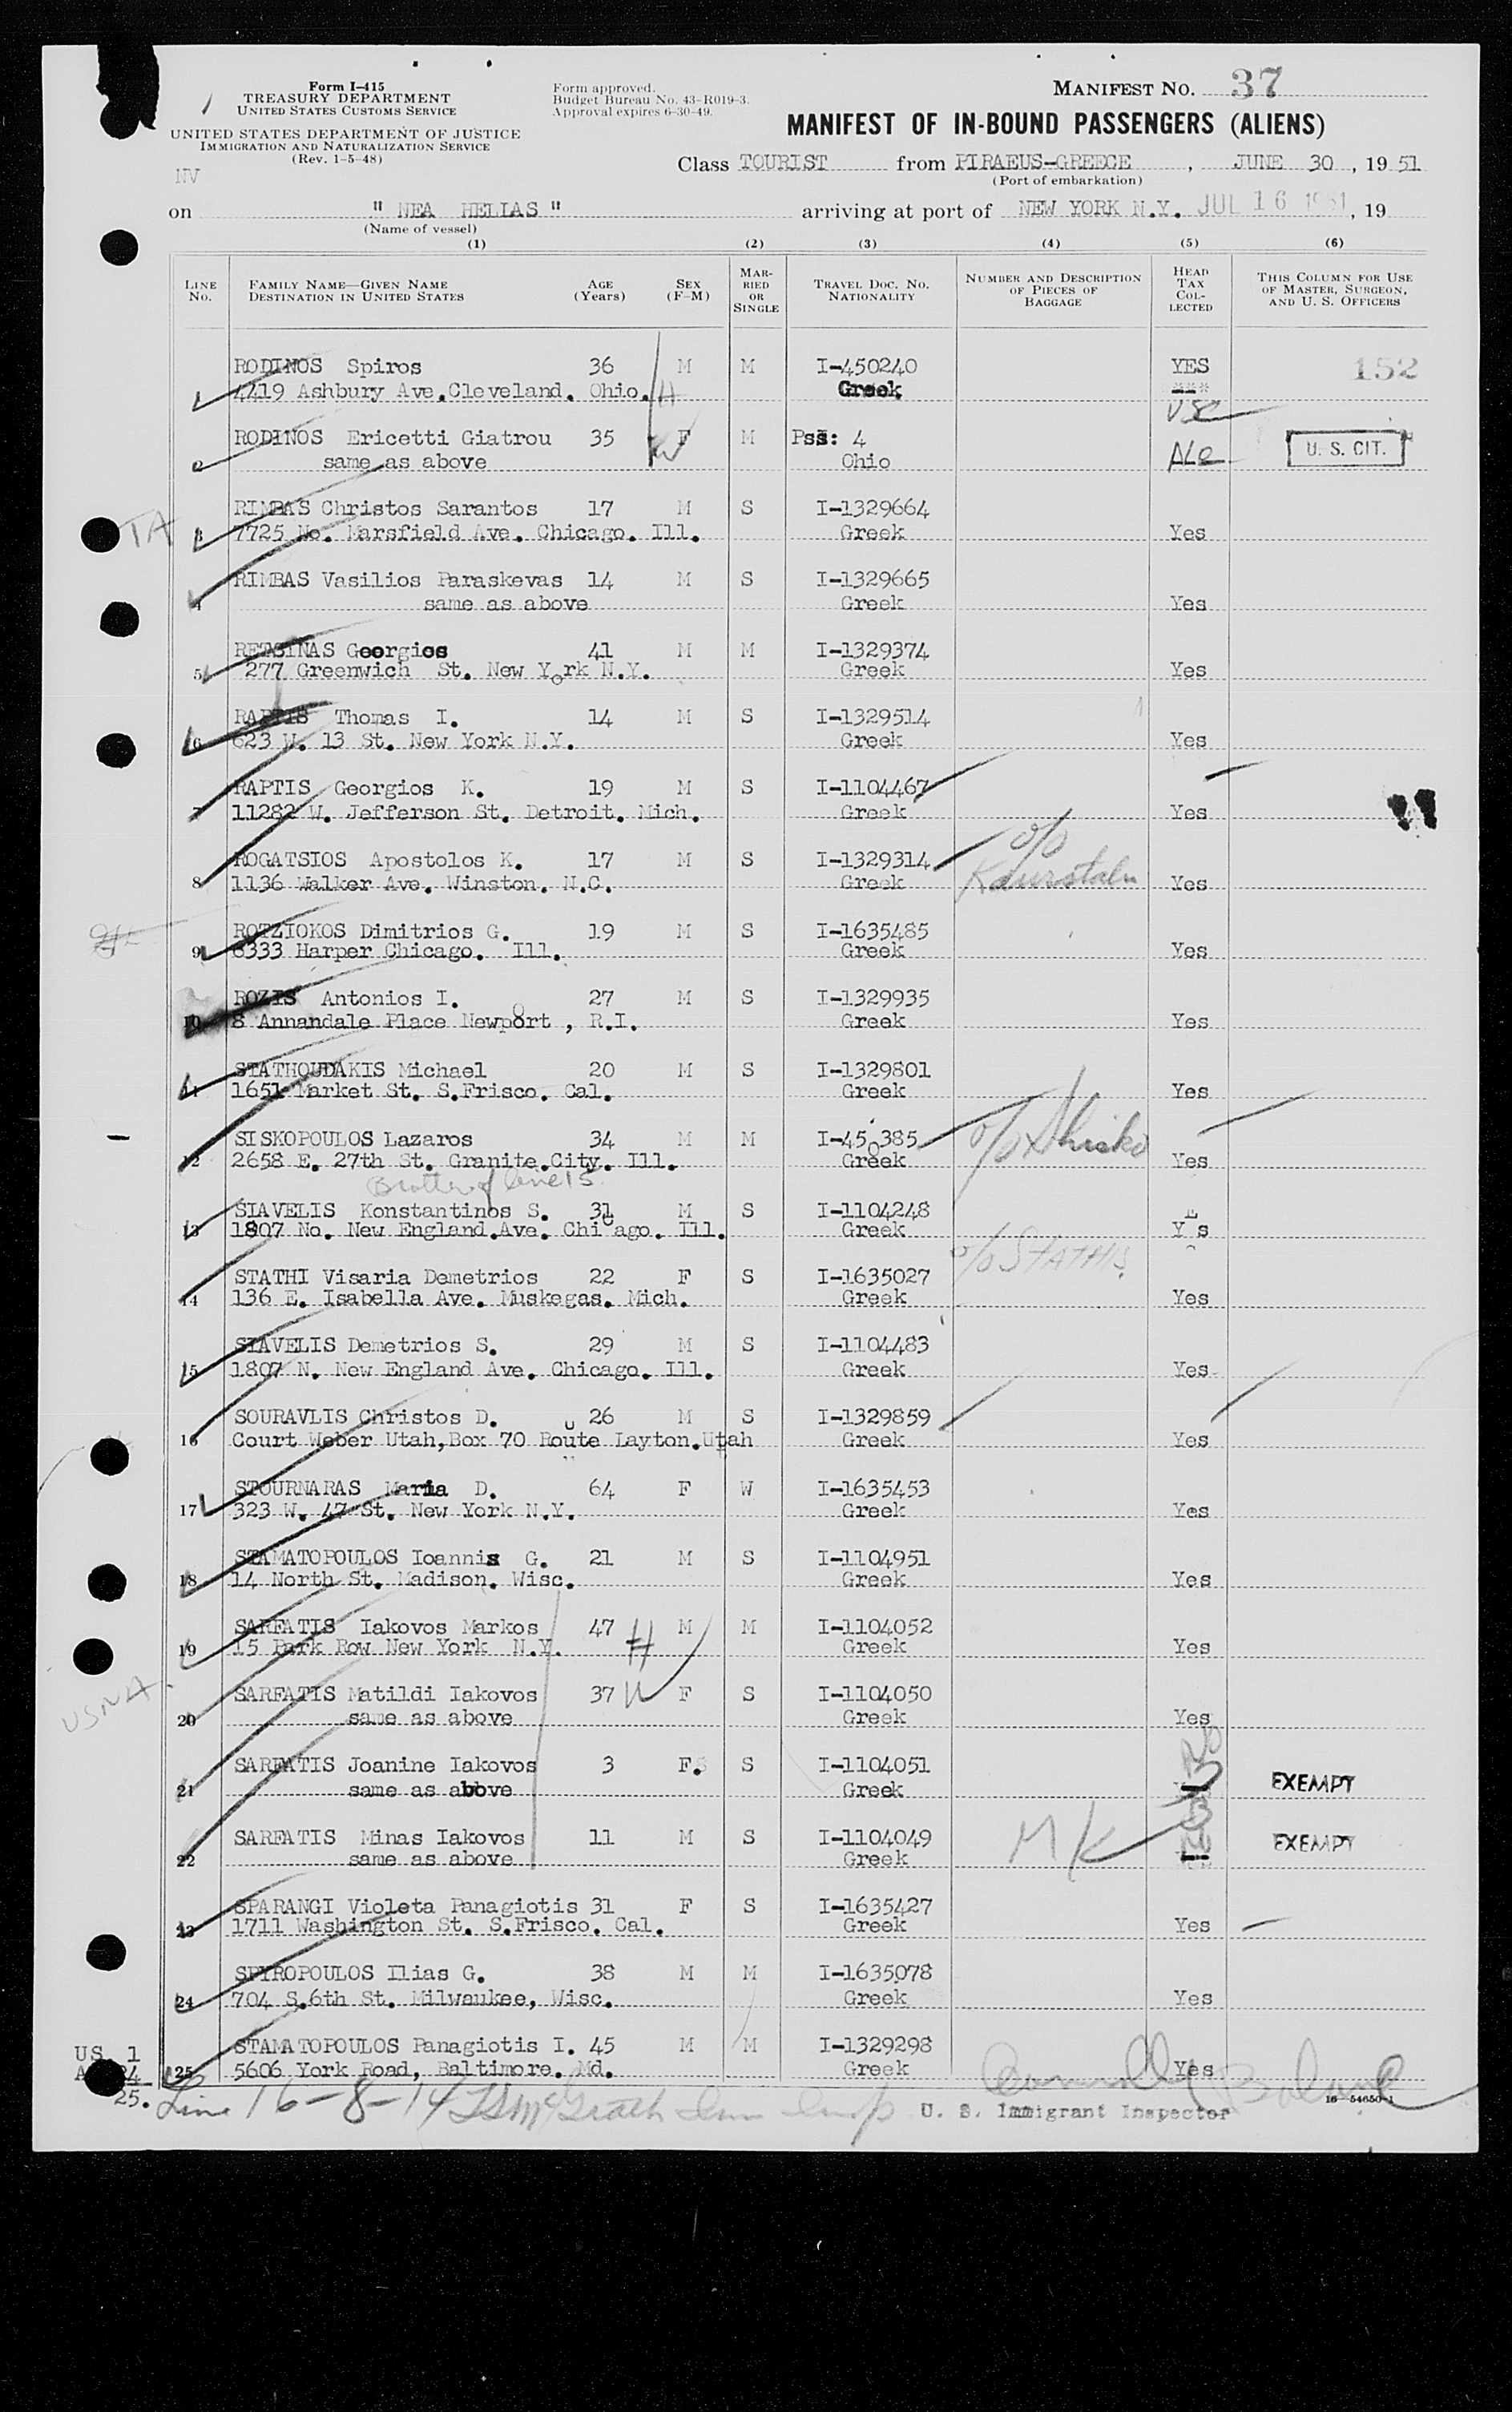 Form I-415
TREASURY DEPARTMENT
UNITED STATES CUSTOMS SERVICE
UNITED STATES DEPARTMENT OF JUSTICE
IMMIGRATION AND NATURALIZATION SERVICE
(Rev. 1-5-48)
Form approved.
Budget Bureau No. 43-R019-3.
Approval expires 6-30-49.
MANIFEST NO. 37
MANIFEST OF IN-BOUND PASSENGERS (ALIENS)
Class TOURIST from PIRAEUS-GREECE, JUNE 30, 19 51
(Port of embarkation)
NV
on " NEA HELLAS " arriving at port of NEW YORK N.Y. JUL 16 1951, 19
(Name of vessel)
(1) (2) (3) (4) (5) (6)
LINE No. FAMILY NAME—GIVEN NAME DESTINATION IN UNITED STATES AGE (Years) SEX (F-M) MARRIED OR SINGLE TRAVEL DOC. NO. NATIONALITY NUMBER AND DESCRIPTION OF PIECES OF BAGGAGE HEAD TAX COLLECTED THIS COLUMN FOR USE OF MASTER, SURGEON, AND U. S. OFFICERS
RODINOS Spiros 36 M M I-450240 YES 152
1 4419 Ashbury Ave.Cleveland. Ohio. H Greek
USC
RODINOS Ericetti Giatrou 35 F M Pss: 4 U. S. CIT.
2 same as above W Ohio
RIMBAS Christos Sarantos 17 M S I-1329664
TA 3 7725 No. Marsfield Ave. Chicago. Ill. Greek Yes
RIMBAS Vasilios Paraskevas 14 M S I-1329665
4 same as above Greek Yes
RETSINAS Georgios 41 M M I-1329374
5 277 Greenwich St. New York N.Y. Greek Yes
RAPTIS Thomas I. 14 M S I-1329514
6 623 W. 13 St. New York N.Y. Greek Yes
RAPTIS Georgios K. 19 M S I-1104467
7 11282 W. Jefferson St. Detroit. Mich. Greek Yes
ROGATSIOS Apostolos K. 17 M S I-1329314 o/o
8 1136 Walker Ave. Winston. N.C. Greek Yes
ROTZIOKOS Dimitrios G. 19 M S I-1635485
9 8333 Harper Chicago. Ill. Greek Yes
ROZIS Antonios I. 27 M S I-1329935
10 8 Annandale Place Newport , R.I. Greek Yes
STATHOUDAKIS Michael 20 M S I-1329801
11 1651 Market St. S.Frisco. Cal. Greek Yes
SISKOPOULOS Lazaros 34 M M I-450385 o/o Shisko
12 2658 E. 27th St. Granite.City. Ill. Greek Yes
Brother of line 15
SIAVELIS Konstantinos S. 31 M S I-1104248
13 1807 No. New England.Ave. Chicago. Ill. Greek Yes
o/o STATHIS
STATHI Visaria Demetrios 22 F S I-1635027
14 136 E. Isabella Ave. Muskegas. Mich. Greek Yes
SIAVELIS Demetrios S. 29 M S I-1104483
15 1807 N. New England Ave. Chicago. Ill. Greek Yes
SOURAVLIS Christos D. 26 M S I-1329859
16 Court Weber Utah,Box 70 Route Layton.Utah Greek Yes
STOURNARAS Maria D. 64 F W I-1635453
17 323 W. 47 St. New York N.Y. Greek Yes
STAMATOPOULOS Ioannis G. 21 M S I-1104951
18 14 North St. Madison. Wisc. Greek Yes
SARFATIS Iakovos Markos 47 H M M I-1104052
19 15 Park Row New York N.Y. Greek Yes
USNA
SARFATIS Matildi Iakovos 37 W F S I-1104050
20 same as above Greek Yes
SARFATIS Joanine Iakovos 3 F. S I-1104051 EXEMPT
21 same as above Greek No
SARFATIS Minas Iakovos 11 M S I-1104049 MK EXEMPT
22 same as above Greek
SPARANGI Violeta Panagiotis 31 F S I-1635427
23 1711 Washington St. S.Frisco. Cal. Greek Yes
SPYROPOULOS Ilias G. 38 M M I-1635078
24 704 S.6th St. Milwaukee, Wisc. Greek Yes
STAMATOPOULOS Panagiotis I. 45 M M I-1329298
25 5606 York Road, Baltimore. Md. Greek Yes
US 1
A 24
25.
Line 16-8-14 McGrath Imm Insp
U. S. Immigrant Inspector
16-54650-1